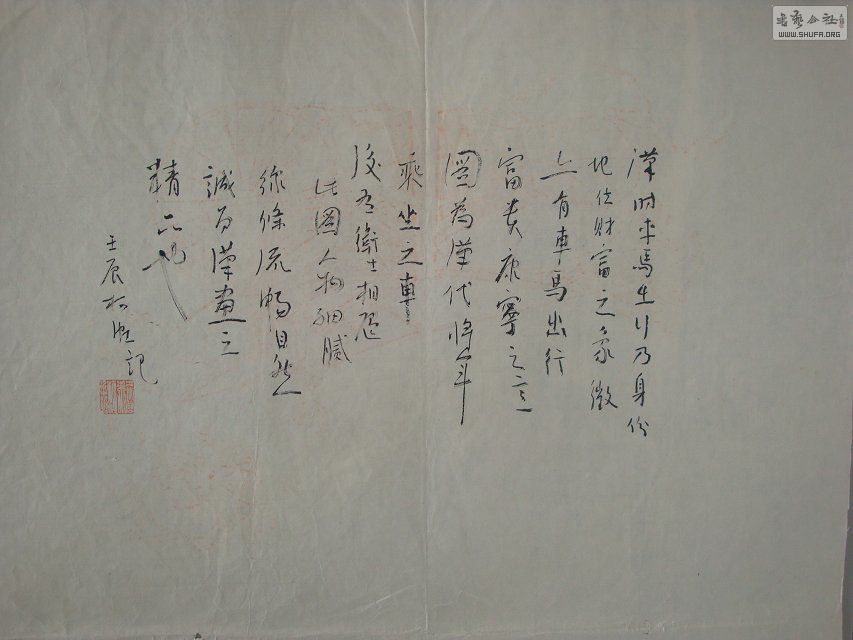 漢時車馬出行乃身份
地位財富之象徵
上有車馬出行
富貴康寧之意
圖為漢代將軍
乘坐之車
後有衛士相隨
此圖人物細膩
線條流暢自然
誠為漢畫之
精品也
壬辰 記
書藝公社
WWW.SHUFA.ORG